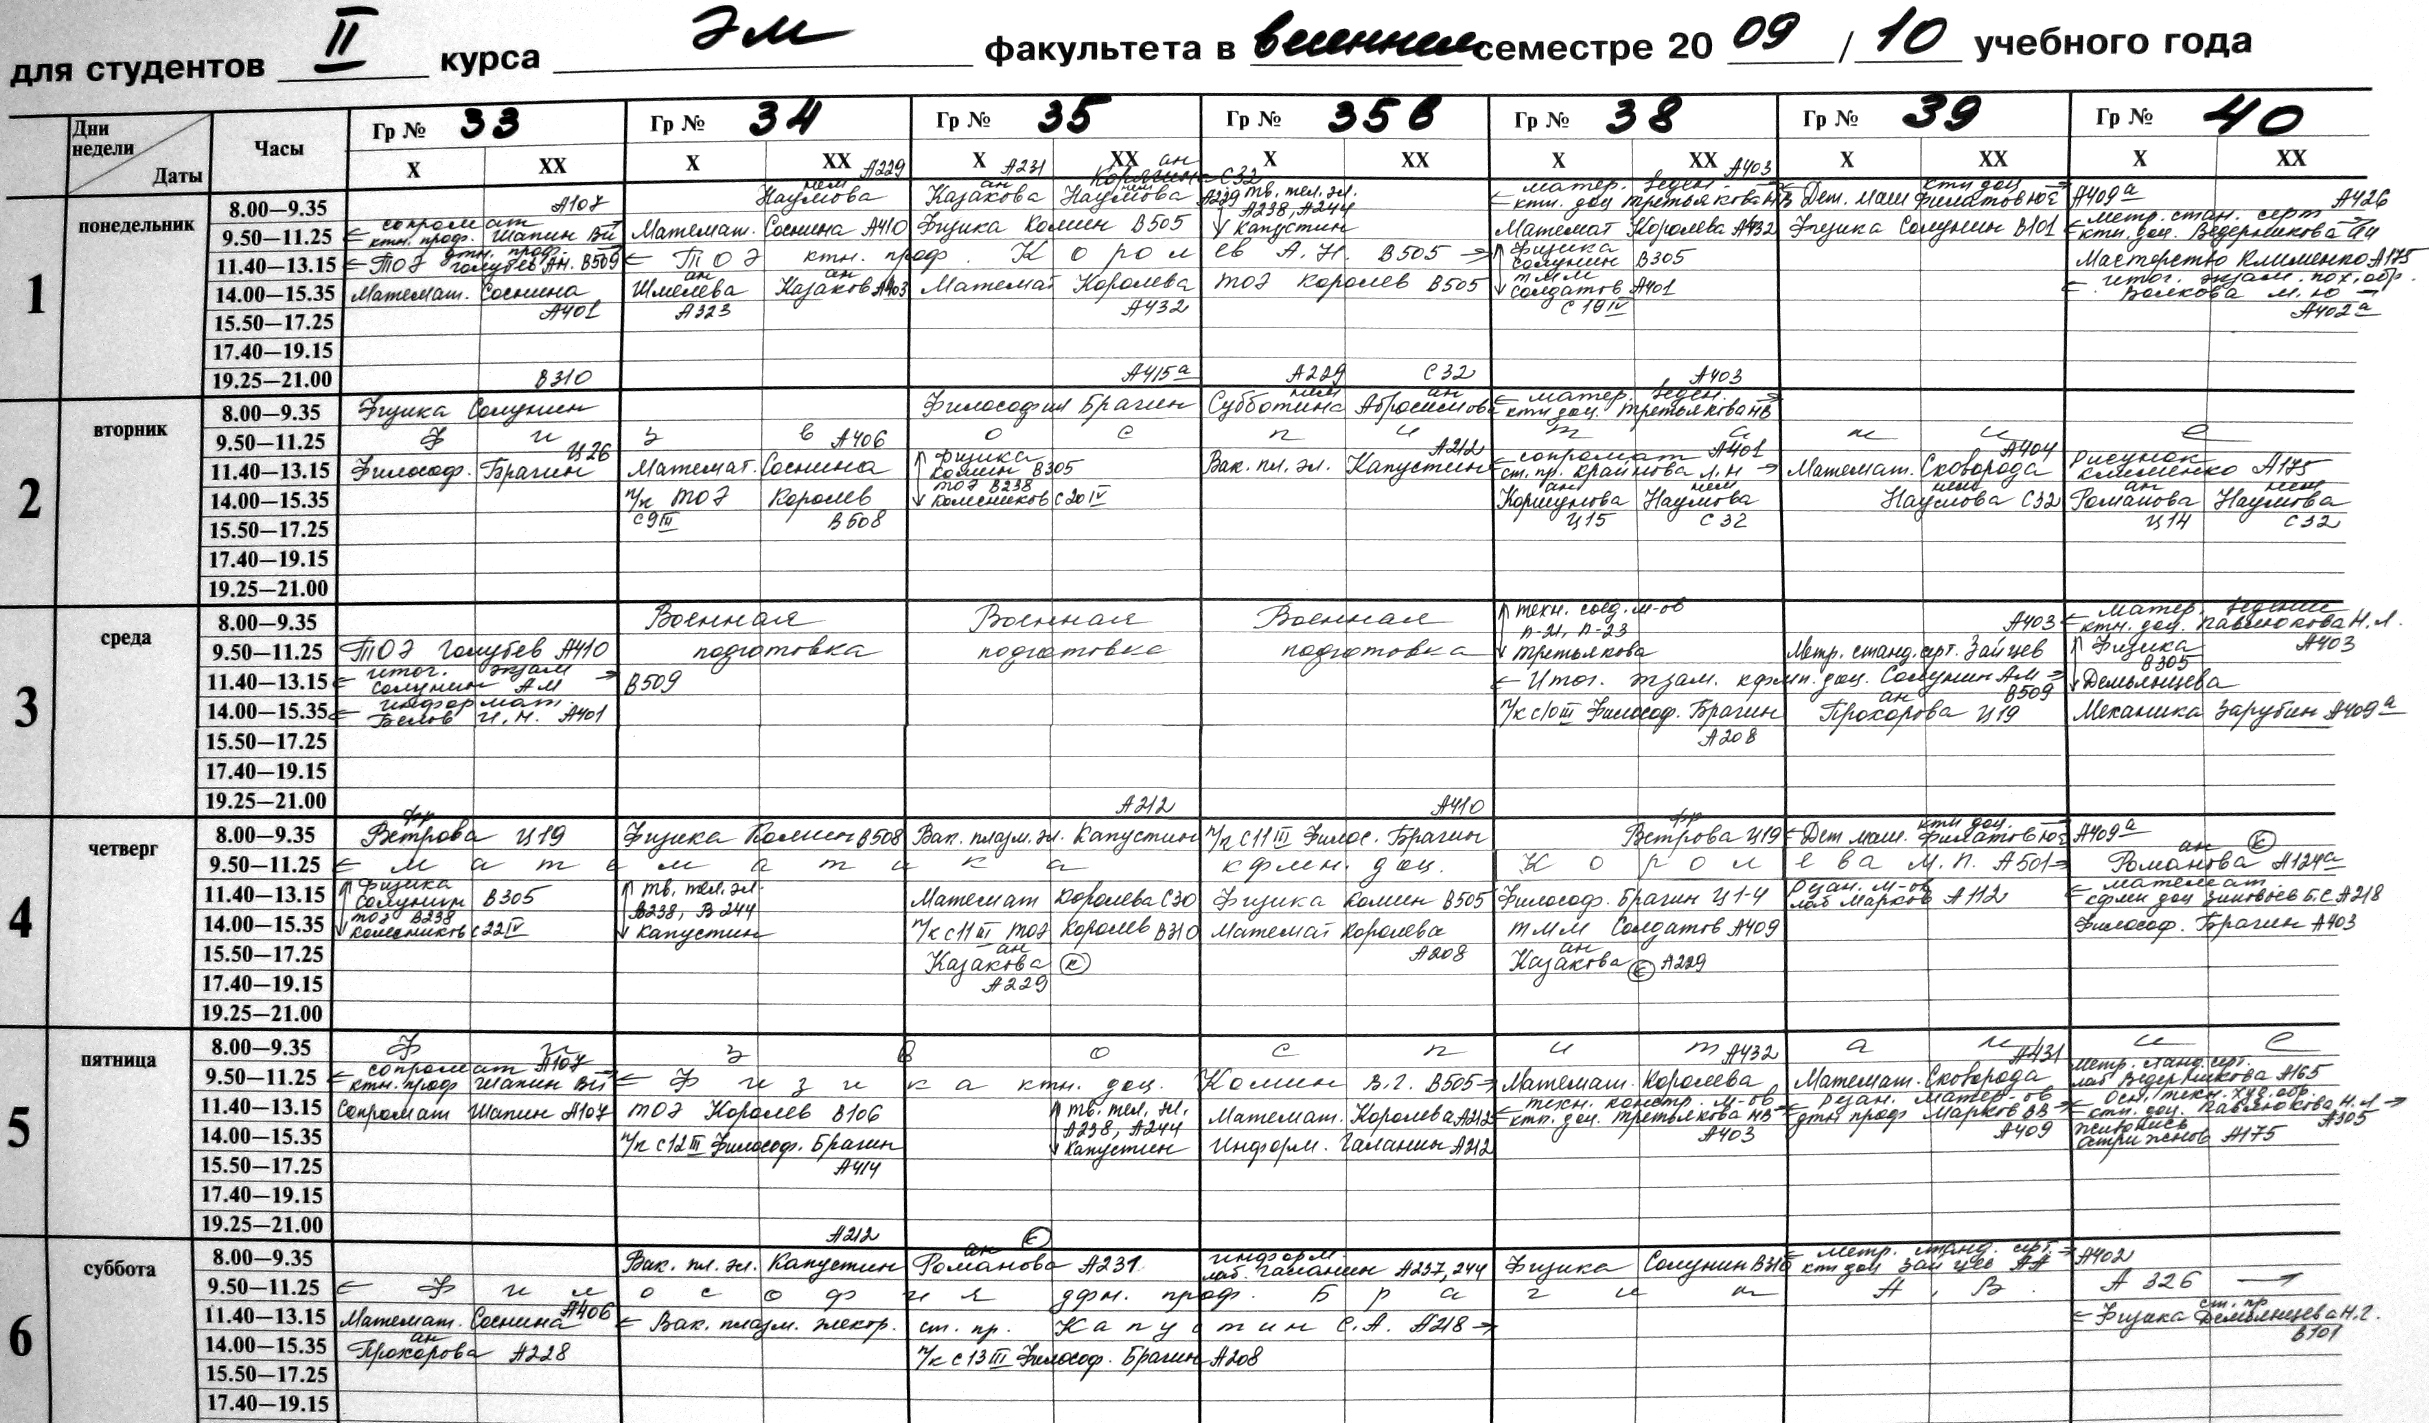 для студентов II курса ЭМ факультета в весеннем семестре 20 09 / 10 учебного года
Дни недели Даты Часы Гр № 33 Гр № 34 Гр № 35 Гр № 35в Гр № 38 Гр № 39 Гр № 40
X XX X XX А229 X А231 XX ан X XX X XX А403 X XX X XX
1 понедельник
8.00—9.35 А107 нем Наумова ан Казакова нем Наумова С32 А229 тв. тел. эл. ← матер. веден. → ктн. доц Третьякова НВ ← Дет. маш ктн доц Филатов ЮЕ → А409а А426
9.50—11.25 ← сопромат ктн. проф. Шапин ВИ Математ. Соснина А410 Физика Комин В505 А238, А244 Капустин Математ Королева А432 Физика Солунин В101 ← метр. стан. серт ктн. доц. Ведерникова
11.40—13.15 ← ТОЭ дтн. проф. Голубев АН. В509 ← ТОЭ ктн. проф. Королев А. Н. В505 → Физика Солунин В305 Мастерство Клименко А175
14.00—15.35 Математ. Соснина ан Шмелева ан Казаков А403 Математ Королева ТОЭ Королев В505 ТММ Солдатов А401 ← итог. экзам. по х. обр. Волкова М. Ю →
15.50—17.25 А401 А323 А432 С 19 IV А402а
17.40—19.15
19.25—21.00 В310 А415а А229 С32 А403
2 вторник
8.00—9.35 Физика Солунин Философия Брагин нем Субботина ан Абросимова ← матер. веден. → ктн доц. Третьякова НВ
9.50—11.25 Ф и з в А406 о с п и А212 т а А401 н и А404 е
11.40—13.15 Философ. Брагин Ц26 Математ. Соснина Физика Комин В305 Вак. пл. эл. Капустин ← сопромат ст. пр. Крайнова Л. Н → Математ. Сковорода Рисунок Клименко А175
14.00—15.35 п/к ТОЭ Королев ТОЭ В238 Колесников С 20 IV ан Коршунова нем Наумова нем Наумова С32 ан Романова нем Наумова
15.50—17.25 С 9 III В508 Ц15 С32 Ц14 С32
17.40—19.15
19.25—21.00
3 среда
8.00—9.35 Военная Военная Военная техн. соед. м-ов П-21, П-23 А403 ← матер. ведение ктн. доц. Павлюкова Н. Л.
9.50—11.25 ТОЭ Голубев А410 подготовка подготовка подготовка Третьякова Метр. станд. серт. Зайцев Физика В305 А403
11.40—13.15 ← итог. экзам → Солунин АМ В509 ← Итог. экзам. кфмн. доц. Солунин АМ → В509 Демьянцева
14.00—15.35 ← информат. Белов И. Н. А401 п/к с 10 III Философ. Брагин ан Прохорова Ц19 Механика Зарубин А409а
15.50—17.25 А208
17.40—19.15
19.25—21.00 А212 А410
4 четверг
8.00—9.35 фр Ветрова Ц19 Физика Комин В508 Вак. плазм. эл. Капустин п/к С 11 III Филос. Брагин фр Ветрова Ц19 ← Дет маш. ктн доц. Филатов ЮЕ → А409а
9.50—11.25 ← математика кфмн. доц. Королева М. П. А501 → ан Романова А124а
11.40—13.15 Физика Солунин В305 тв. тел. эл. В238, В244 Математ Королева С30 Физика Комин В505 Философ. Брагин Ц1-4 лаб Марков А112 ← математ. кфмн доц Зиновьев Б. С А218
14.00—15.35 ТОЭ В238 Колесников С 22 IV Капустин п/к С 11 III ТОЭ Королев В310 Математ Королева ТММ Солдатов А409 Философ. Брагин А403
15.50—17.25 ан Казакова А208 ан Казакова А229
17.40—19.15 А229
19.25—21.00
5 пятница
8.00—9.35 Ф и з в о с п и т А432 а н А431 и е
9.50—11.25 ← сопромат А107 ктн. проф Шапин ВИ ← Физика ктн. доц. Комин В. Г. В505 → Математ. Королева Математ. Сковорода Метр. станд. серт. лаб Ведерникова А165
11.40—13.15 Сопромат Шапин А107 ТОЭ Королев В106 тв. тел. эл. Математ. Королева А212 ← техн. констр. м-ов ктн. доц. Третьякова НВ ← матер-ов дтн проф Марков ВВ → ← Осн. техн. худ. обр. ктн. доц. Павлюкова Н. Л →
14.00—15.35 п/к С 12 III Философ. Брагин А238, А244 Капустин Информ. Галанин А212 А403 А409 Живопись Стриженов А175 А305
15.50—17.25 А414
17.40—19.15
19.25—21.00 А212
6 суббота
8.00—9.35 Вак. пл. эл. Капустин ан Романова А231 информ. лаб. Галанин А237, 244 Физика Солунин В310 ← метр. станд. серт. → ктн доц Зайцев АА А402
9.50—11.25 ← Философия дфн. проф. Брагин А. В. А 326 →
11.40—13.15 Математ. Соснина А406 ← Вак. плазм. электр. ст. пр. Капустин С. А. А218 → ← Физика ст. пр Демьянцева Н. Г.
14.00—15.35 ан Прохорова А228 п/к С 13 III Философ. Брагин А208 В101
15.50—17.25
17.40—19.15